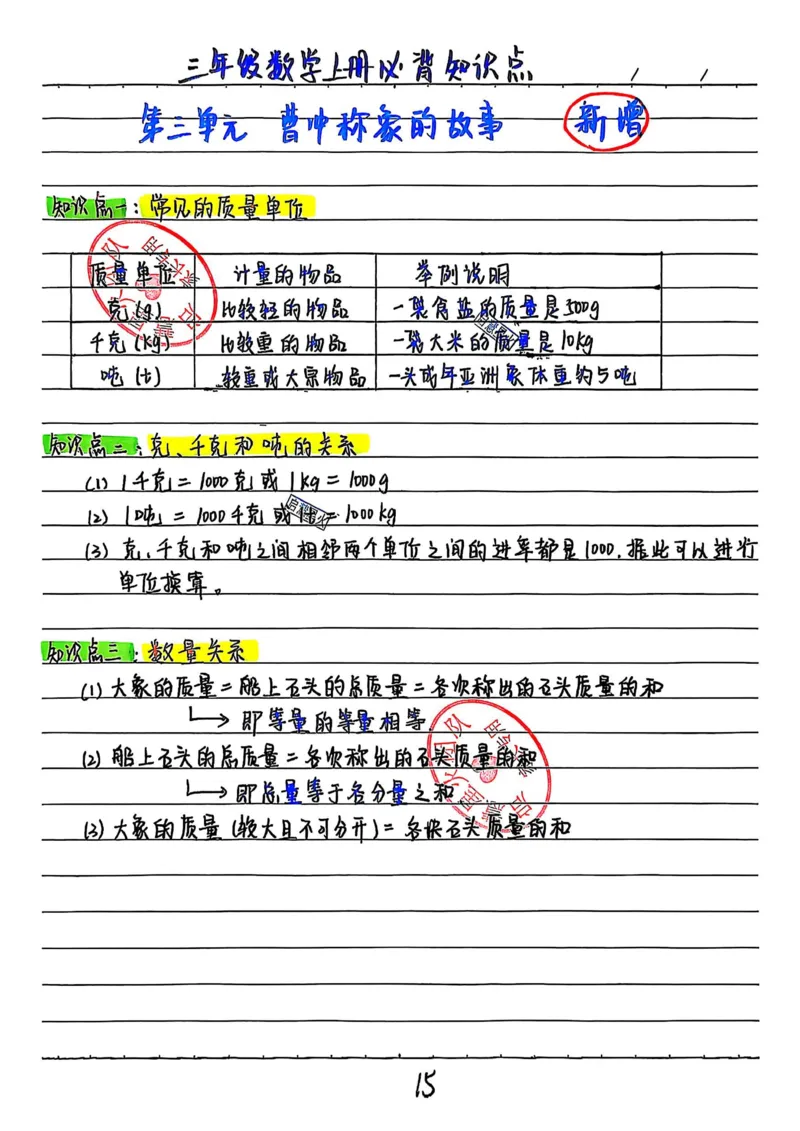 三年级数学上册必背知识点
第三单元 曹冲称象的故事 新增
知识点一：常见的质量单位
质量单位 计量的物品 举例说明
克(g) 比较轻的物品 一袋食盐的质量是500g
千克(kg) 比较重的物品 一袋大米的质量是10kg
吨(t) 较重或大宗物品 一头成年亚洲象体重约5吨
知识点二：克、千克和吨的关系
(1) 1千克=1000克或1kg=1000g
(2) 1吨=1000千克或1t=1000kg
(3) 克、千克和吨之间相邻两个单位之间的进率都是1000,据此可以进行
单位换算。
知识点三：数量关系
(1) 大象的质量=船上石头的总质量=各次称出的石头质量的和
即等量的等量相等.
(2) 船上石头的总质量=各次称出的石头质量的和
即总量等于各分量之和
(3) 大象的质量(较大且不可分开)=各块石头质量的和
15